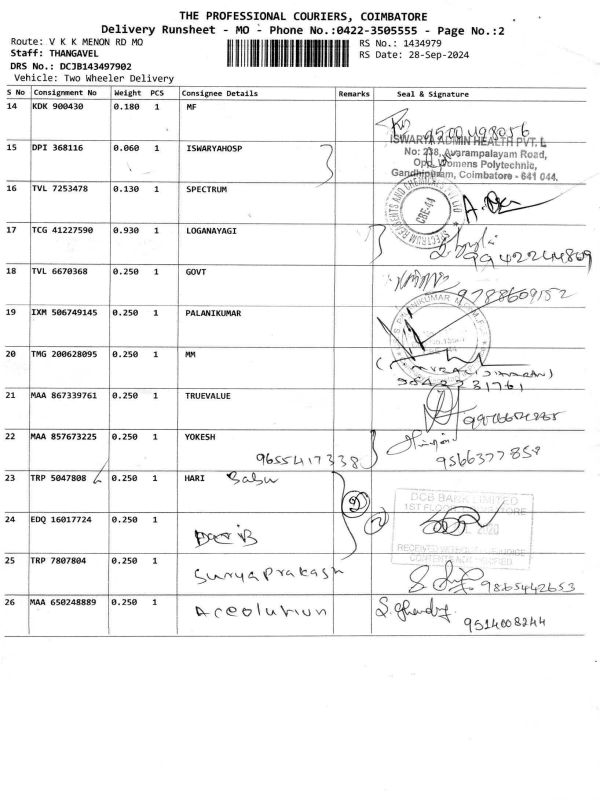 THE PROFESSIONAL COURIERS, COIMBATORE
Delivery Runsheet - MO - Phone No.:0422-3505555 - Page No.:2
Route: V K K MENON RD MO
RS No.: 1434979
Staff: THANGAVEL
RS Date: 28-Sep-2024
DRS No.: DCJB143497902
Vehicle: Two Wheeler Delivery
S No Consignment No Weight PCS Consignee Details Remarks Seal & Signature
14 KDK 900430 0.180 1 MF
9500498056
15 DPI 368116 0.060 1 ISWARYAHOSP
ISWARYA ADMIN HEALTH PVT. L
No: 238, Avarampalayam Road,
Opp. Womens Polytechnic,
Gandhipuram, Coimbatore - 641 044.
16 TVL 7253478 0.130 1 SPECTRUM
SPECTRUM REAGENTS AND CHEMICALS PVT LTD
CBE-44
17 TCG 41227590 0.930 1 LOGANAYAGI
9942244809
18 TVL 6670368 0.250 1 GOVT
9788609152
19 IXM 506749145 0.250 1 PALANIKUMAR
20 TMG 200628095 0.250 1 MM
9842231761
21 MAA 867339761 0.250 1 TRUEVALUE
22 MAA 857673225 0.250 1 YOKESH
9655417338
9566377858
23 TRP 5047808 0.250 1 HARI Babu
DCB BANK LIMITED
24 EDQ 16017724 0.250 1
25 TRP 7807804 0.250 1 Surya Prakash
9865442653
26 MAA 650248889 0.250 1 Aceolution
9514008244